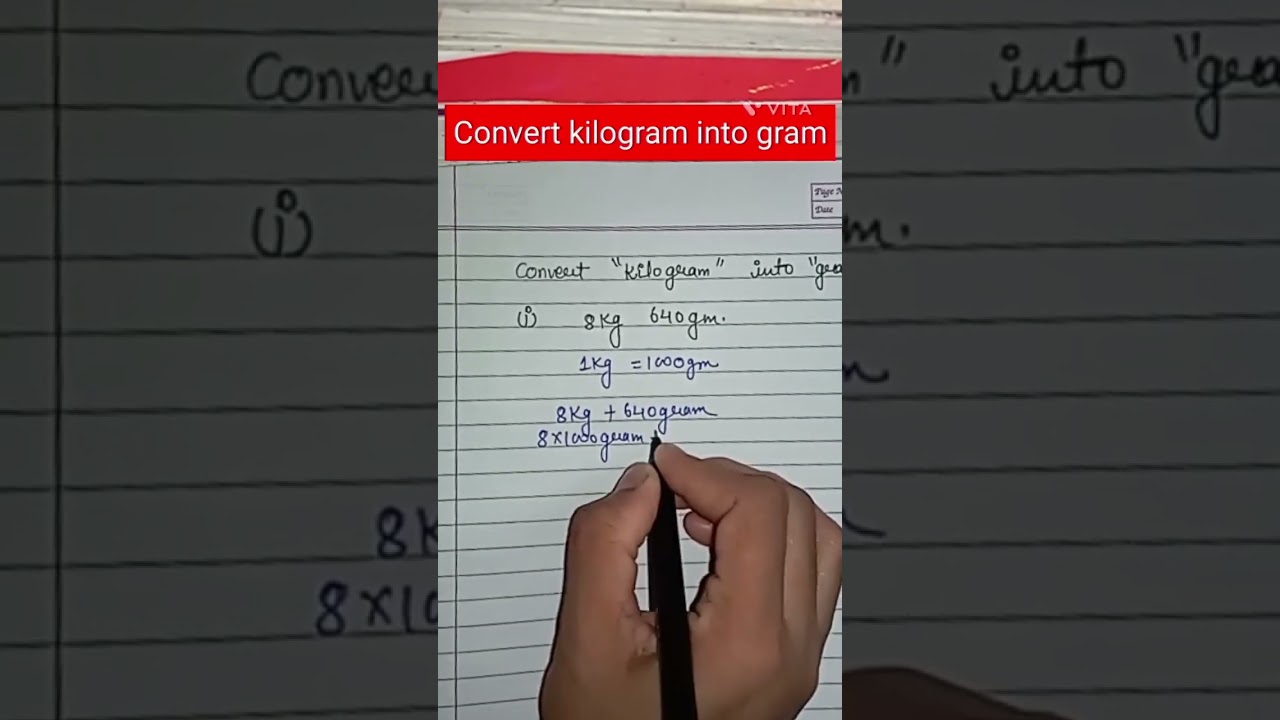 VITA
Convert kilogram into gram
Page N
Date
Convert "Kilogram" into "gra
(i) 8Kg 640gm.
1Kg = 1000gm
8Kg + 640gram
8×1000gram